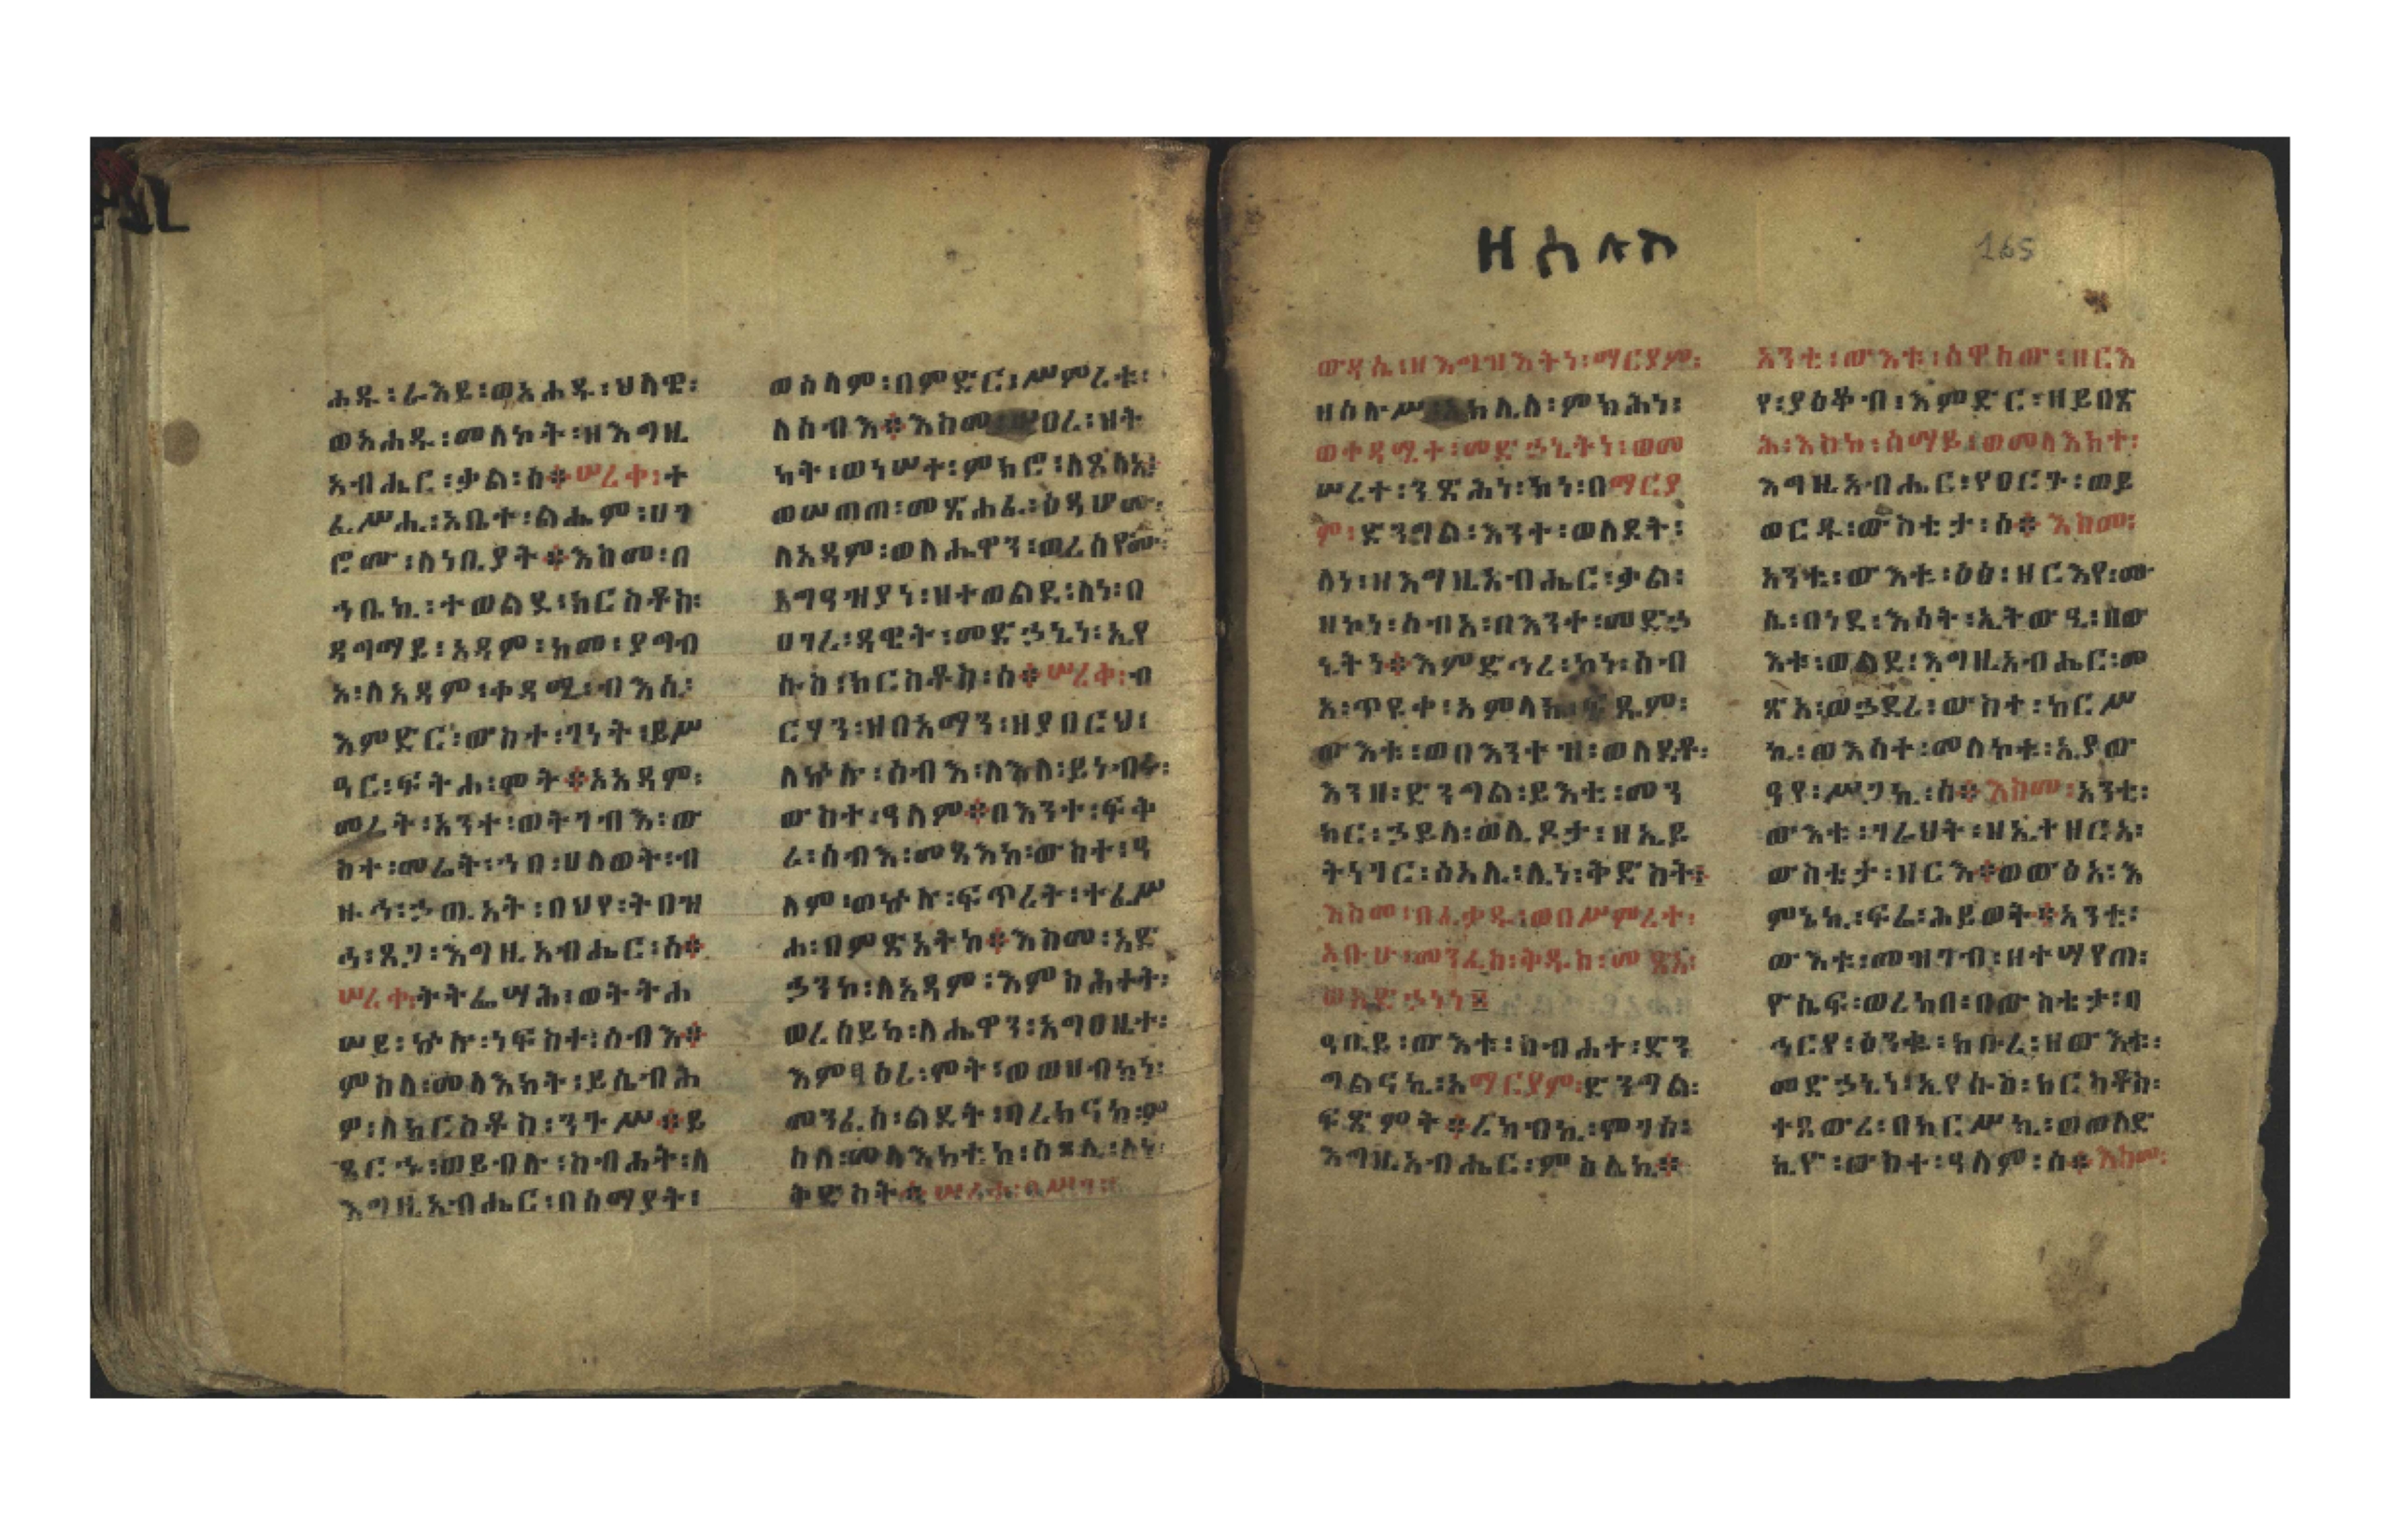 ሐዱ፡ራእይ፡ወአሐዱ፡ህላዌ፡
ወአሐዱ፡መለኮት፡ዘእግዚ
አብሔር፡ቃል፡ስ፨ሠረቀ፡ተ
ፈሥሒ፡አቤተ፡ልሔም፡ሀገ
ሮሙ፡ለነቢያት፨እከመ፡በ
ኀቤኪ፡ተወልደ፡ክርስቶስ፡
ዳግማይ፡አዳም፡ከመ፡ያግብ
አ፡ለአዳም፡ቀዳሚ፡ብእሲ፡
እምድር፡ውስተ፡ገነት፡ይሥ
ዓር፡ፍትሐ፡ሞት፨አአዳም፡
መሬት፡አንተ፡ወትገብእ፡ው
ስተ፡መሬት፡ኀበ፡ሀለወት፡ብ
ዙኅ፡ኃጢአት፡በህየ፡ትበዝ
ኅ፡ጸጋ፡እግዚአብሔር፡ስ፨
ሠረቀ፡ትትፌሣሕ፡ወትትሐ
ሠይ፡ኵሉ፡ነፍስተ፡ሰብእ፨
ምስለ፡መላእክት፡ይሴብሕ
ዎ፡ለክርስቶስ፡ንጉሥ፨ይ
ጼርኁ፡ወይብሉ፡ስብሐት፡ለ
እግዚአብሔር፡በሰማያት፡
ወሰላም፡በምድር፡ሥምረቱ፡
ለሰብእ፨እስመ፡ዐረ፡ዝት
ካት፡ወነሠተ፡ምክሮ፡ለጸላኢ፡
ወሠጠጠ፡መጽሐፈ፡ዕዳሆሙ፡
ለአዳም፡ወለሔዋን፡ወረሰዮሙ፡
አግዓዝያነ፡ዘተወልደ፡ለነ፡በ
ሀገረ፡ዳዊት፡መድኃኒነ፡ኢየ
ሱስ፡ክርስቶስ፡ስ፨ሠረቀ፡ብ
ርሃን፡ዘበአማን፡ዘያበርህ፡
ለኵሉ፡ሰብእ፡ለእለ፡ይነብሩ፡
ውስተ፡ዓለም፨በእንተ፡ፍቅ
ረ፡ሰብእ፡መጻእከ፡ውስተ፡ዓ
ለም፡ወኵሉ፡ፍጥረት፡ተፈሥ
ሐ፡በምጽአትከ፨እስመ፡አድ
ኃንኮ፡ለአዳም፡እምስሕተት፡
ወረሰይካ፡ለሔዋን፡አግዐዚተ፡
እምፃዕረ፡ሞት፡ወወሀብከነ፡
መንፈሰ፡ልደት፡ባረክናከ፡ም
ስለ፡መላእክቲከ፡ሰጸሊ፡ለነ፡
ቅድስት፨
ዘሠሉስ
165
ውዳሴ፡ዘእግዝእትነ፡ማርያም፡
ዘሰሉሥ፡አክሊለ፡ምክሕነ፡
ወቀዳሚተ፡መድኃኒትነ፡ወመ
ሠረተ፡ንጽሕነ፡ኮነ፡በማርያ
ም፡ድንግል፡እንተ፡ወለደት፡
ለነ፡ዘእግዚአብሔር፡ቃል፡
ዘኮነ፡ሰብአ፡በእንተ፡መድኃ
ኒትነ፨እምድኅረ፡ኮነ፡ሰብ
አ፡ጥዩቀ፡አምላክ፡ፍጹም፡
ውእቱ፡ወበእንተዝ፡ወለደቶ፡
እንዘ፡ድንግል፡ይእቲ፡መን
ክር፡ኃይለ፡ወሊዶታ፡ዘኢይ
ትነገር፡ሰአሊ፡ለነ፡ቅድስት፡
እስመ፡በፈቃዱ፡ወበሥምረተ፡
አቡሁ፡መንፈስ፡ቅዱስ፡መጽአ፡
ወአድኃነነ፨
ዓቢይ፡ውእቱ፡ስብሐተ፡ድን
ግልናኪ፡አማርያም፡ድንግል፡
ፍጽምት፨ረከብኪ፡ሞገሰ፡
እግዚአብሔር፡ምስሌኪ፨
አንቲ፡ውእቱ፡ሰዋስው፡ዘርእ
የ፡ያዕቆብ፡እምድር፡ዘይበጽ
ሕ፡እስከ፡ሰማይ፡ወመላእክተ፡
እግዚአብሔር፡የዐርጉ፡ወይ
ወርዱ፡ውስቴታ፡ስ፨እስመ፡
አንቲ፡ውእቱ፡ዕፅ፡ዘርእየ፡ሙ
ሴ፡በነደ፡እሳት፡ኢትውዒ፡ዘው
እቱ፡ወልደ፡እግዚአብሔር፡መ
ጽአ፡ወኃደረ፡ውስተ፡ከርሥ
ኪ፡ወእሳተ፡መለኮቱ፡ኢያው
ዓየ፡ሥጋኪ፡ስ፨እስመ፡አንቲ፡
ውእቱ፡ገራህት፡ዘኢተዘርአ፡
ውስቴታ፡ዘርእ፨ወወፅአ፡እ
ምኔኪ፡ፍሬ፡ሕይወት፨አንቲ፡
ውእቱ፡መዝገብ፡ዘተሣየጠ፡
ዮሴፍ፡ወረከበ፡በውስቴታ፡ባ
ኅርየ፡ዕንቈ፡ክቡረ፡ዘውእቱ፡
መድኃኒነ፡ኢየሱስ፡ክርስቶስ፡
ተጸውረ፡በከርሥኪ፡ወወለድ
ኪዮ፡ውስተ፡ዓለም፡ስ፨እስመ፡